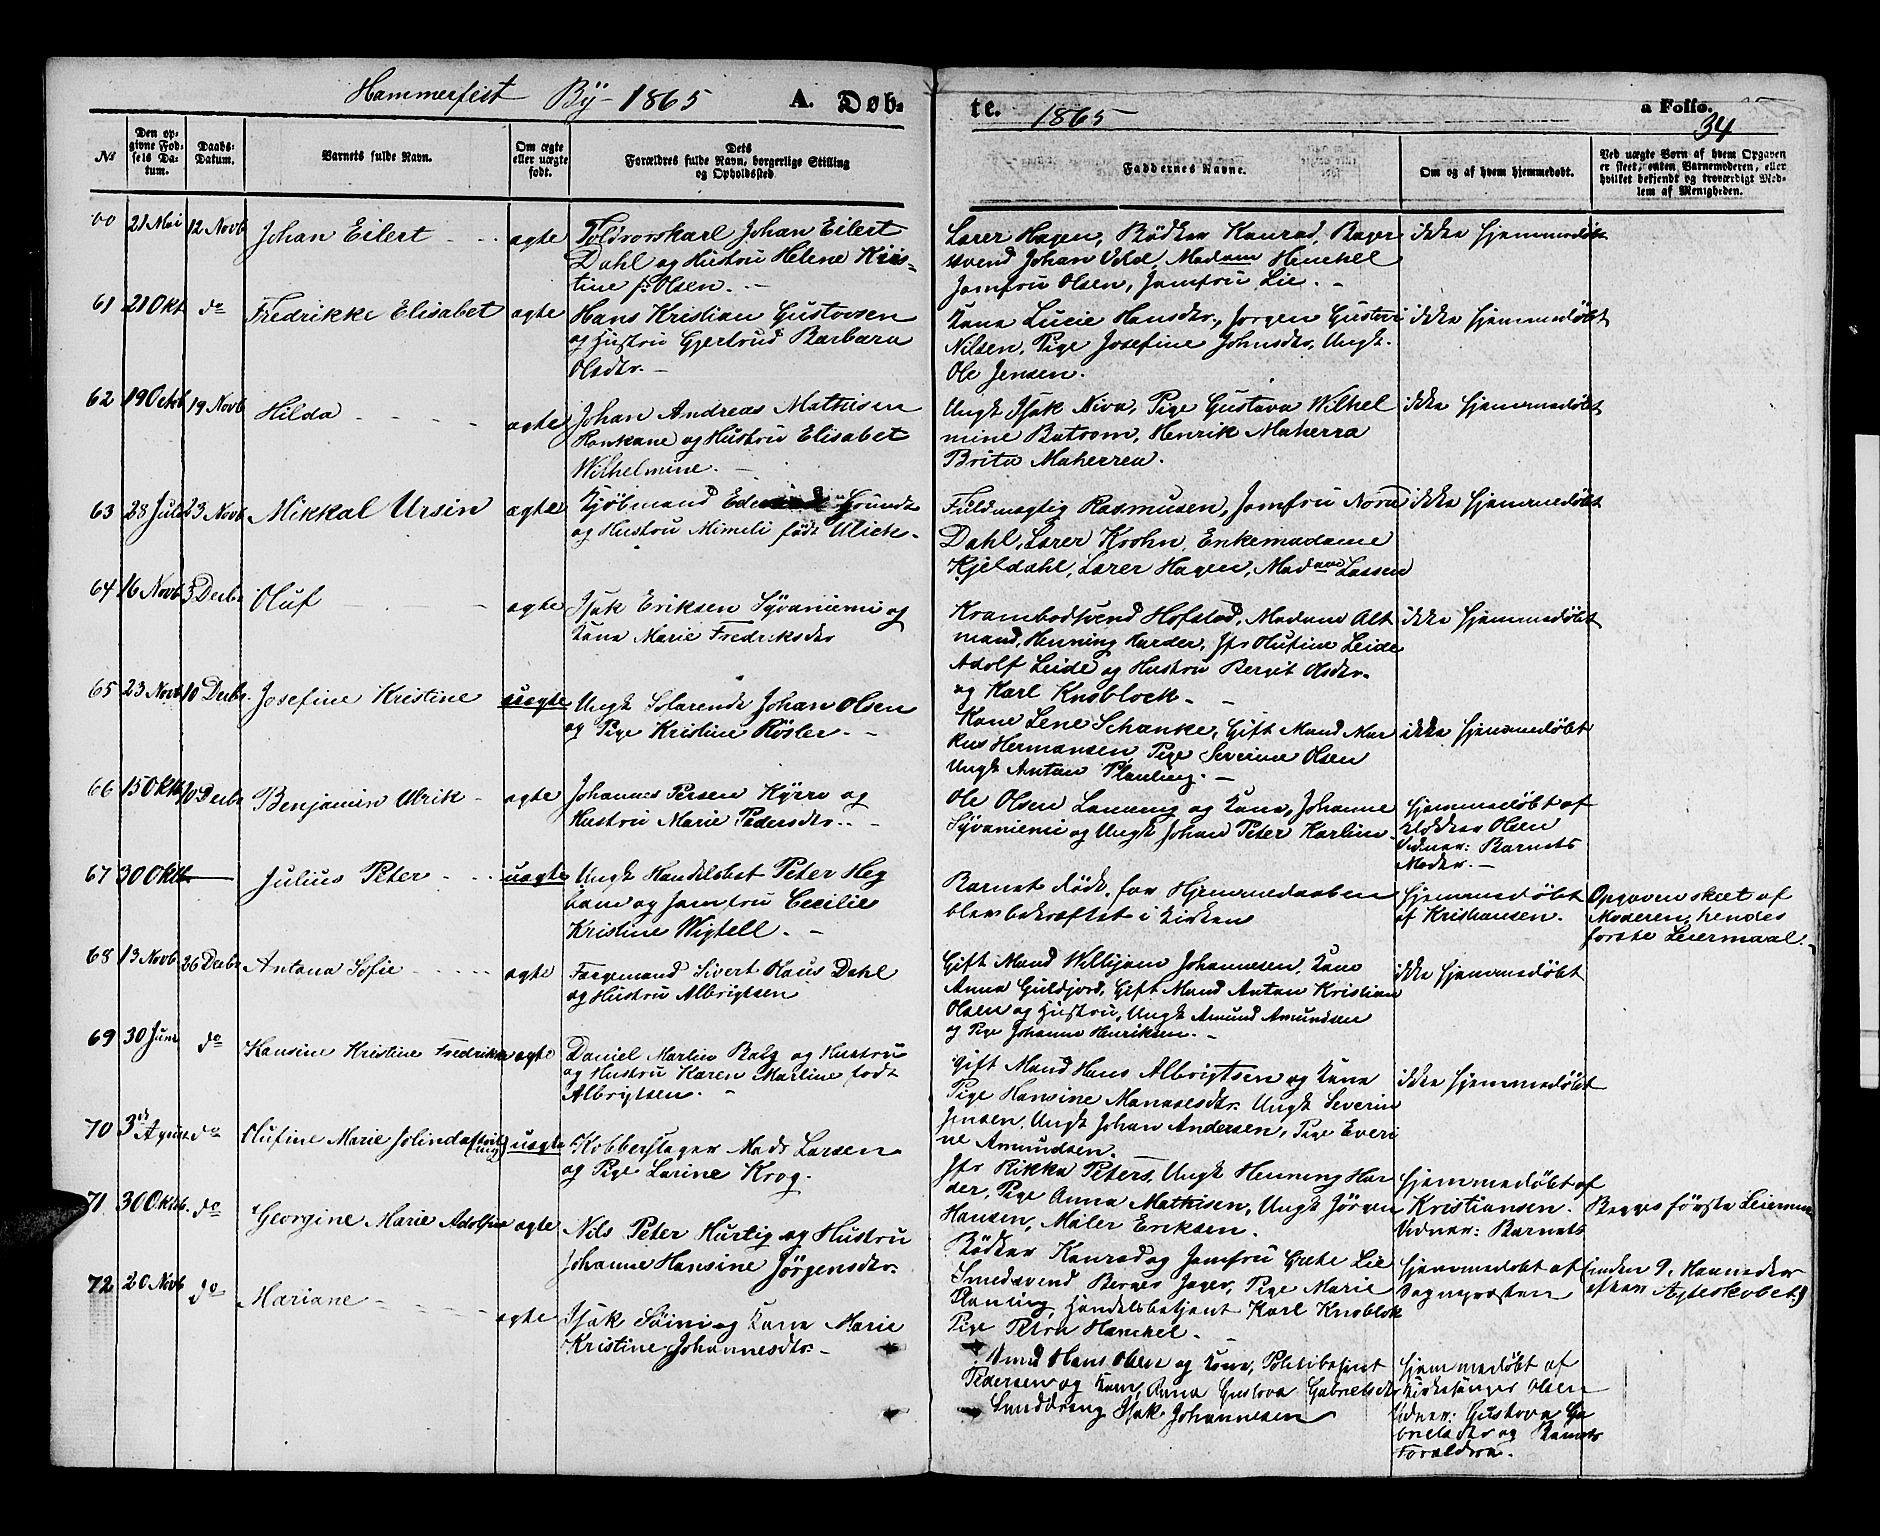 Hammerfest By- 1865 A. Døb-
te. 1865 a Folio.
34
No
Den op-
givne Fød-
sels Da-
tum.
Daabs-
Datum.
Barnets fulde Navn.
Om ægte
eller uægte
født.
Dets
Forældres fulde Navn, borgerlige Stilling
og Opholdssted
Faddernes Navne.
Om og af hvem hjemmedøbt.
Ved uægte Børn af hvem Opgaven
er skeet, enten Barnemoderen, eller
hvilket bekjendt og troværdigt Med-
lem af Menigheden.
21 Mai 12 Novb Johan Eilert - - ægte
Toldrorskarl Johan Eilert
Dahl og Hustru Helene Kris-
tine f: Olsen. -
Lærer Hagen, Bødker Konrad, Bager
svend Johan Madam Henckel
Jomfru Olsen, Jomfru Lie. -
ikke hjemmedøbt
61 21 Okt do Fredrikke Elisabet ægte
Hans Kristian Gustavsen
og Hustru Gjertrud Barbara
Olsdtr. -
Kone Lucie Hansdtr, Jørgen Gustav
Nilsen, Pige Josefine Johnsdtr, Ungk.
Ole Jensen.
ikke hjemmedøbt
62 19 Octb 19 Novb Hilda - - - - ægte
Johan Andreas Mathisen
Ronkane og Hustru Elisabet
Wilhelmine. -
Ungk Isak Niva, Pige Gustava Wilhel
mine Batrom, Henrik Maherra
Brita Maherrea.
ikke hjemmedøbt
63 28 Juli 23 Novb Mikkal Ursin ægte
Kjøbmand Grundt
og Hustru Mimeli født Ulich.
Fuldmægtig Rasmusen, Jomfru Nora
Dahl, Lærer Krohn, Enkemadame
Kjeldahl, Lærer Hagen, Madam Lassen
ikke hjemmedøbt
64 16 Novb 3 Decbr Oluf - - - ægte
Isak Eriksen Syvaniemi og
Kone Marie Fredriksdtr
Krambodsvend Hofstad, Madam Alt
mand, Henning Harder, Jfr Olufine Leide
Adolf Leide og Hustru Bergit Olsdtr.
og Karl Knoblock. -
ikke hjemmedøbt
65 23 Novb 10 Decbr. Josefine Kristine uægte
Ungk Johan Olsen
og Pige Kristine Røsler. -
Kone Lene Schanke, Gift Mand Mar
kus Hermansen, Pige Severine Olsen
Ungk Anton Planting. -
ikke hjemmedøbt
66 15 Oktb 10 Decbr Benjamin Ulrik - ægte
Johannes Persen Kyrrø og
Hustru Marie Pedersdtr. -
Ole Olsen Lanung og Kone, Johanne
Syvaniemi og Ungk Johan Peter Karlin
hjemmedøbt af
Klokker Olsen
Vidner: Barnets
Moder. -
67 30 Oktb. - Julius Peter - - uægte
Ungk Handelsbet Peter Heg
bom og Jomfru Cecilie
Kristine Wigtell. -
Barnet døde, før Hjemmedaaben
blev bekræftet i Kirken
hjemmedøbt
af Kristiansen.
Opgaven skeet af
Moderen, hendes
første Leiermaal. -
68 13 Novb. 26 Decbr Antona Sofie - - - ægte
Færgemand Sivert Claus Dahl
og Hustru Albrigtsen
Gift Mand Willijam Johannesen, Kone
Anna Guldjord, Gift Mand Anton Kristian
Olsen og Hustru, Ungk Amund Amundsen
og Pige Johanne Henriksen. -
ikke hjemmedøbt
69 30 Juni do Hansine Kristine Fredrikke ægte
Daniel Martin Balg og Hustru
og Hustru Karen Martine født
Albrigtsen. -
Gift Mand Hans Albrigtsen og Kone
Pige Hansine Manasesdtr. Ungk Severin
Jensen, Ungk Johan Andersen, Pige Everi
ne Amundsen.
ikke hjemmedøbt
70 3 August do Olufine Marie Jolinda uægte
Kobberslager Mads Larsen
og Pige Larine Krog.
Jfr Rikka Peters, Ungk Henning Har
der, Pige Anna Mathisen, Ungk Jørgen
Hansen, Maler Eriksen.
hjemmedøbt af
Kristiansen.
Vidner: Barnets
Begges første Leierm
71 30 Oktb. do Georgine Marie Adolfine ægte
Nils Peter Hurtig og Hustru
Johanne Hansine Jørgensdtr.
Bødker Konrad og Jomfru Grete Lie
Smedsvend Berger Jager, Pige Marie
Planing, Handelsbetjent Karl Knoblok
Pige Petra Henckel. -
hjemmedøbt af
Sognepræsten
(inden 9 Maaneder
efter Ægteskabet)
72 20 Novb do Mariane - - - - ægte
Isak Sieini og Kone Marie
Kristine Johannesdtr. -
Smed Hans Olsen og Kone, Politibetjent
Pedersen og Kone, Anna Gustava Gabrielsdtr
Smeddreng Isak Johannesen
hjemmedøbt af
Kirkesanger Olsen
Vidner: Gustava Ga
brielsdtr og Barnets
Forældre.